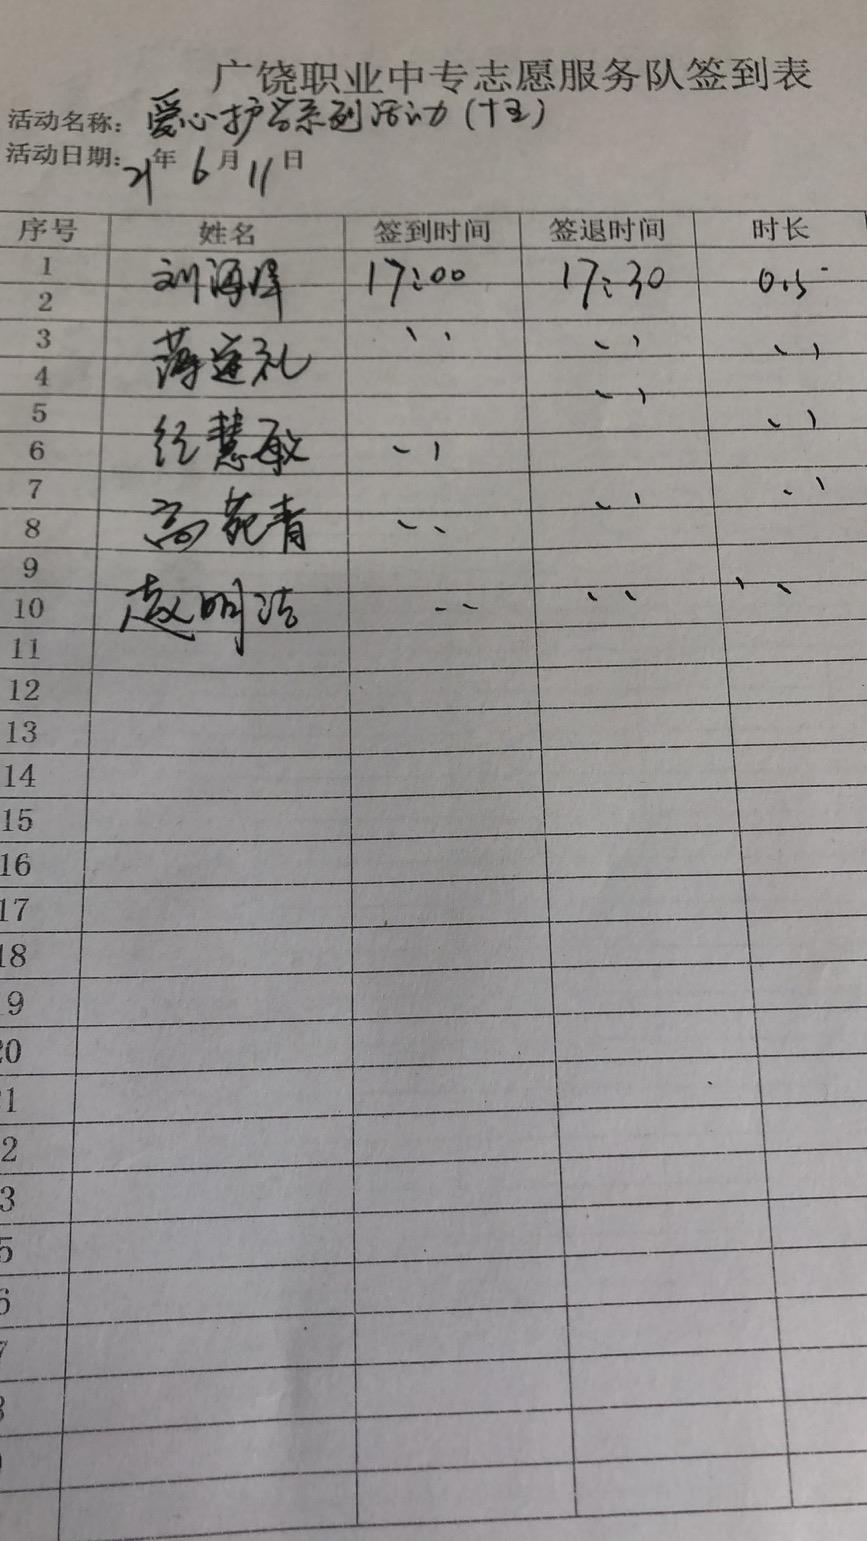 广饶职业中专志愿服务队签到表
活动名称：爱心护学系列活动（十五）
活动日期：21年6月11日
序号 姓名 签到时间 签退时间 时长
1 刘海峰 17:00 17:30 0.5
2
3 蒋道礼 〃 〃 〃
4 〃
5 〃
6 纪慧敏 〃
7 〃 〃
8 高苑青 〃
9 〃 〃
10 赵明洁 〃
11
12
13
14
15
16
17
18
9
20
1
2
3
5
6
7
8